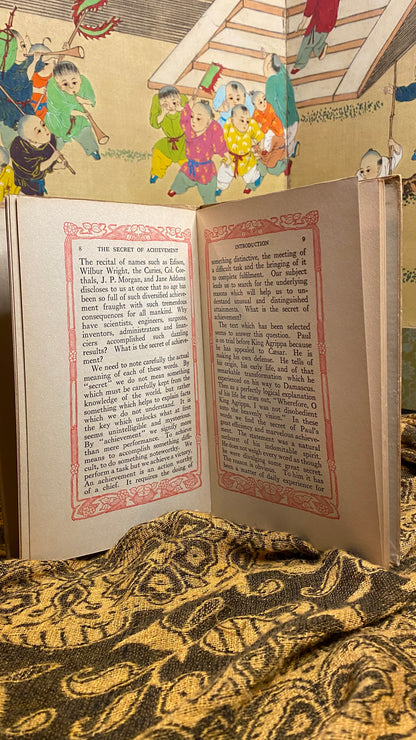 8 THE SECRET OF ACHIEVEMENT
The recital of names such as Edison,
Wilbur Wright, the Curies, Col. Goe-
thals, J. P. Morgan, and Jane Addams
discloses to us at once that no age has
been so full of such diversified achieve-
ment fraught with such tremendous
consequences for all mankind. Why
have scientists, engineers, surgeons,
inventors, administrators and finan-
ciers accomplished such dazzling
results? What is the secret of achieve-
ment?
We need to note carefully the actual
meaning of each of these words. By
"secret" we do not mean something
which must be carefully kept from the
knowledge of the world, but rather
something which help to explain facts
which we do not understand. It is
the key which unlocks what at first
seems unintelligible and mysterious.
By "achievement" we signify more
than mere performance. To achieve
means to accomplish something diffi-
cult, to do something noteworthy. We
perform a task but we achieve a victory.
An achievement is an action worthy
of a chief. It requires the doing of
INTRODUCTION 9
something distinctive, the meeting of
a difficult task and the bringing of it
to complete fulfilment. Our subject
leads us to search for the underlying
reasons which will help us to un-
derstand unusual and distinguished
attainments. What is the secret of
achievement?
The text which has been selected
seems to answer this question. Paul
is on trial before King Agrippa because
he has appealed to Cæsar. He is
making his own defense. He tells of
his origin, his early life, and of that
remarkable transformation which he
experienced on his way to Damascus.
Then as a perfectly logical explanation
of his life he utters this "Wherefore, O
King Agrippa, I was not disobedient
unto the heavenly vision." In these
words we find the secret of Paul's
great efficiency and marvelous achieve-
ment. The statement was a natural
outburst of his indomitable spirit.
He does not weigh every word as though
he were disclosing some great secret.
The reason is obvious. To him it has
been a matter of daily experience for